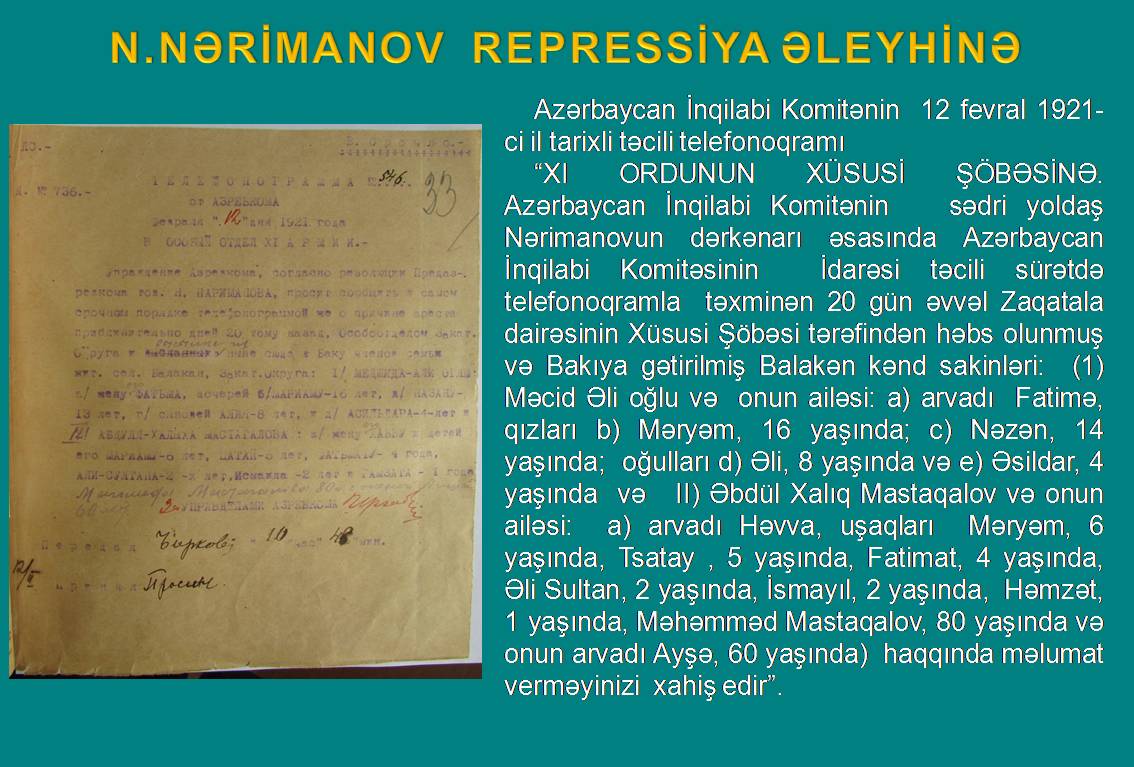 N.NƏRİMANOV REPRESSİYA ƏLEYHİNƏ
Azərbaycan İnqilabi Komitənin 12 fevral 1921-
ci il tarixli təcili telefonoqramı
“XI ORDUNUN XÜSUSİ ŞÖBƏSİNƏ.
Azərbaycan İnqilabi Komitənin sədri yoldaş
Nərimanovun dərkənarı əsasında Azərbaycan
İnqilabi Komitəsinin İdarəsi təcili sürətdə
telefonoqramla təxminən 20 gün əvvəl Zaqatala
dairəsinin Xüsusi Şöbəsi tərəfindən həbs olunmuş
və Bakıya gətirilmiş Balakən kənd sakinləri: (1)
Məcid Əli oğlu və onun ailəsi: a) arvadı Fatimə,
qızları b) Məryəm, 16 yaşında; c) Nəzən, 14
yaşında; oğulları d) Əli, 8 yaşında və e) Əsildar, 4
yaşında və II) Əbdül Xalıq Mastaqalov və onun
ailəsi: a) arvadı Həvva, uşaqları Məryəm, 6
yaşında, Tsatay , 5 yaşında, Fatimat, 4 yaşında,
Əli Sultan, 2 yaşında, İsmayıl, 2 yaşında, Həmzət,
1 yaşında, Məhəmməd Mastaqalov, 80 yaşında və
onun arvadı Ayşə, 60 yaşında) haqqında məlumat
verməyinizi xahiş edir”.
№ 736.-
ТЕЛЕФОНОГРАММА 546.
33
от АЗРЕВКОМА
Февраля "12"дня 1921 года
В ОСОБЫЙ ОТДЕЛ XI АРМИИ.-
Управление Азревкома, согласно резолюции Предаз-
ревкома тов. Н. НАРИМАНОВА, просит сообщить в самом
срочном порядке телефонограммой же о причине ареста
приблизительно дней 20 тому назад, Особотделом Закат.
Округа и ныне сюда в Баку членов семьи
жит. сел. Балакан, Закат.округа: 1/ МЕДЖИДА-АЛИ ОГЛЫ:
а/ жену ФАТЬМА, дочерей б/МАРИАМУ-16 лет, в/ НАЗАНУ-
13 лет, г/ сыновей АЛИЯ-8 лет, и д/ АСИЛЬДАРА-4-лет и
АБДУЛЛ-ХАЛЫКА МАСТАГАЛОВА : а/ жену ХАВВУ и детей
его МАРИАМУ-6 лет, ЦАТАЙ-5 лет, ФАТЬМАТУ- 4 года,
АЛИ-СУЛТАНА-2-х лет, Исмаила -2 лет и ГАМЗАТА - 1 года
За УПРАВДЕЛАМИ АЗРЕВКОМА
Передал "10 час" 48 мин.
12/II
Принял